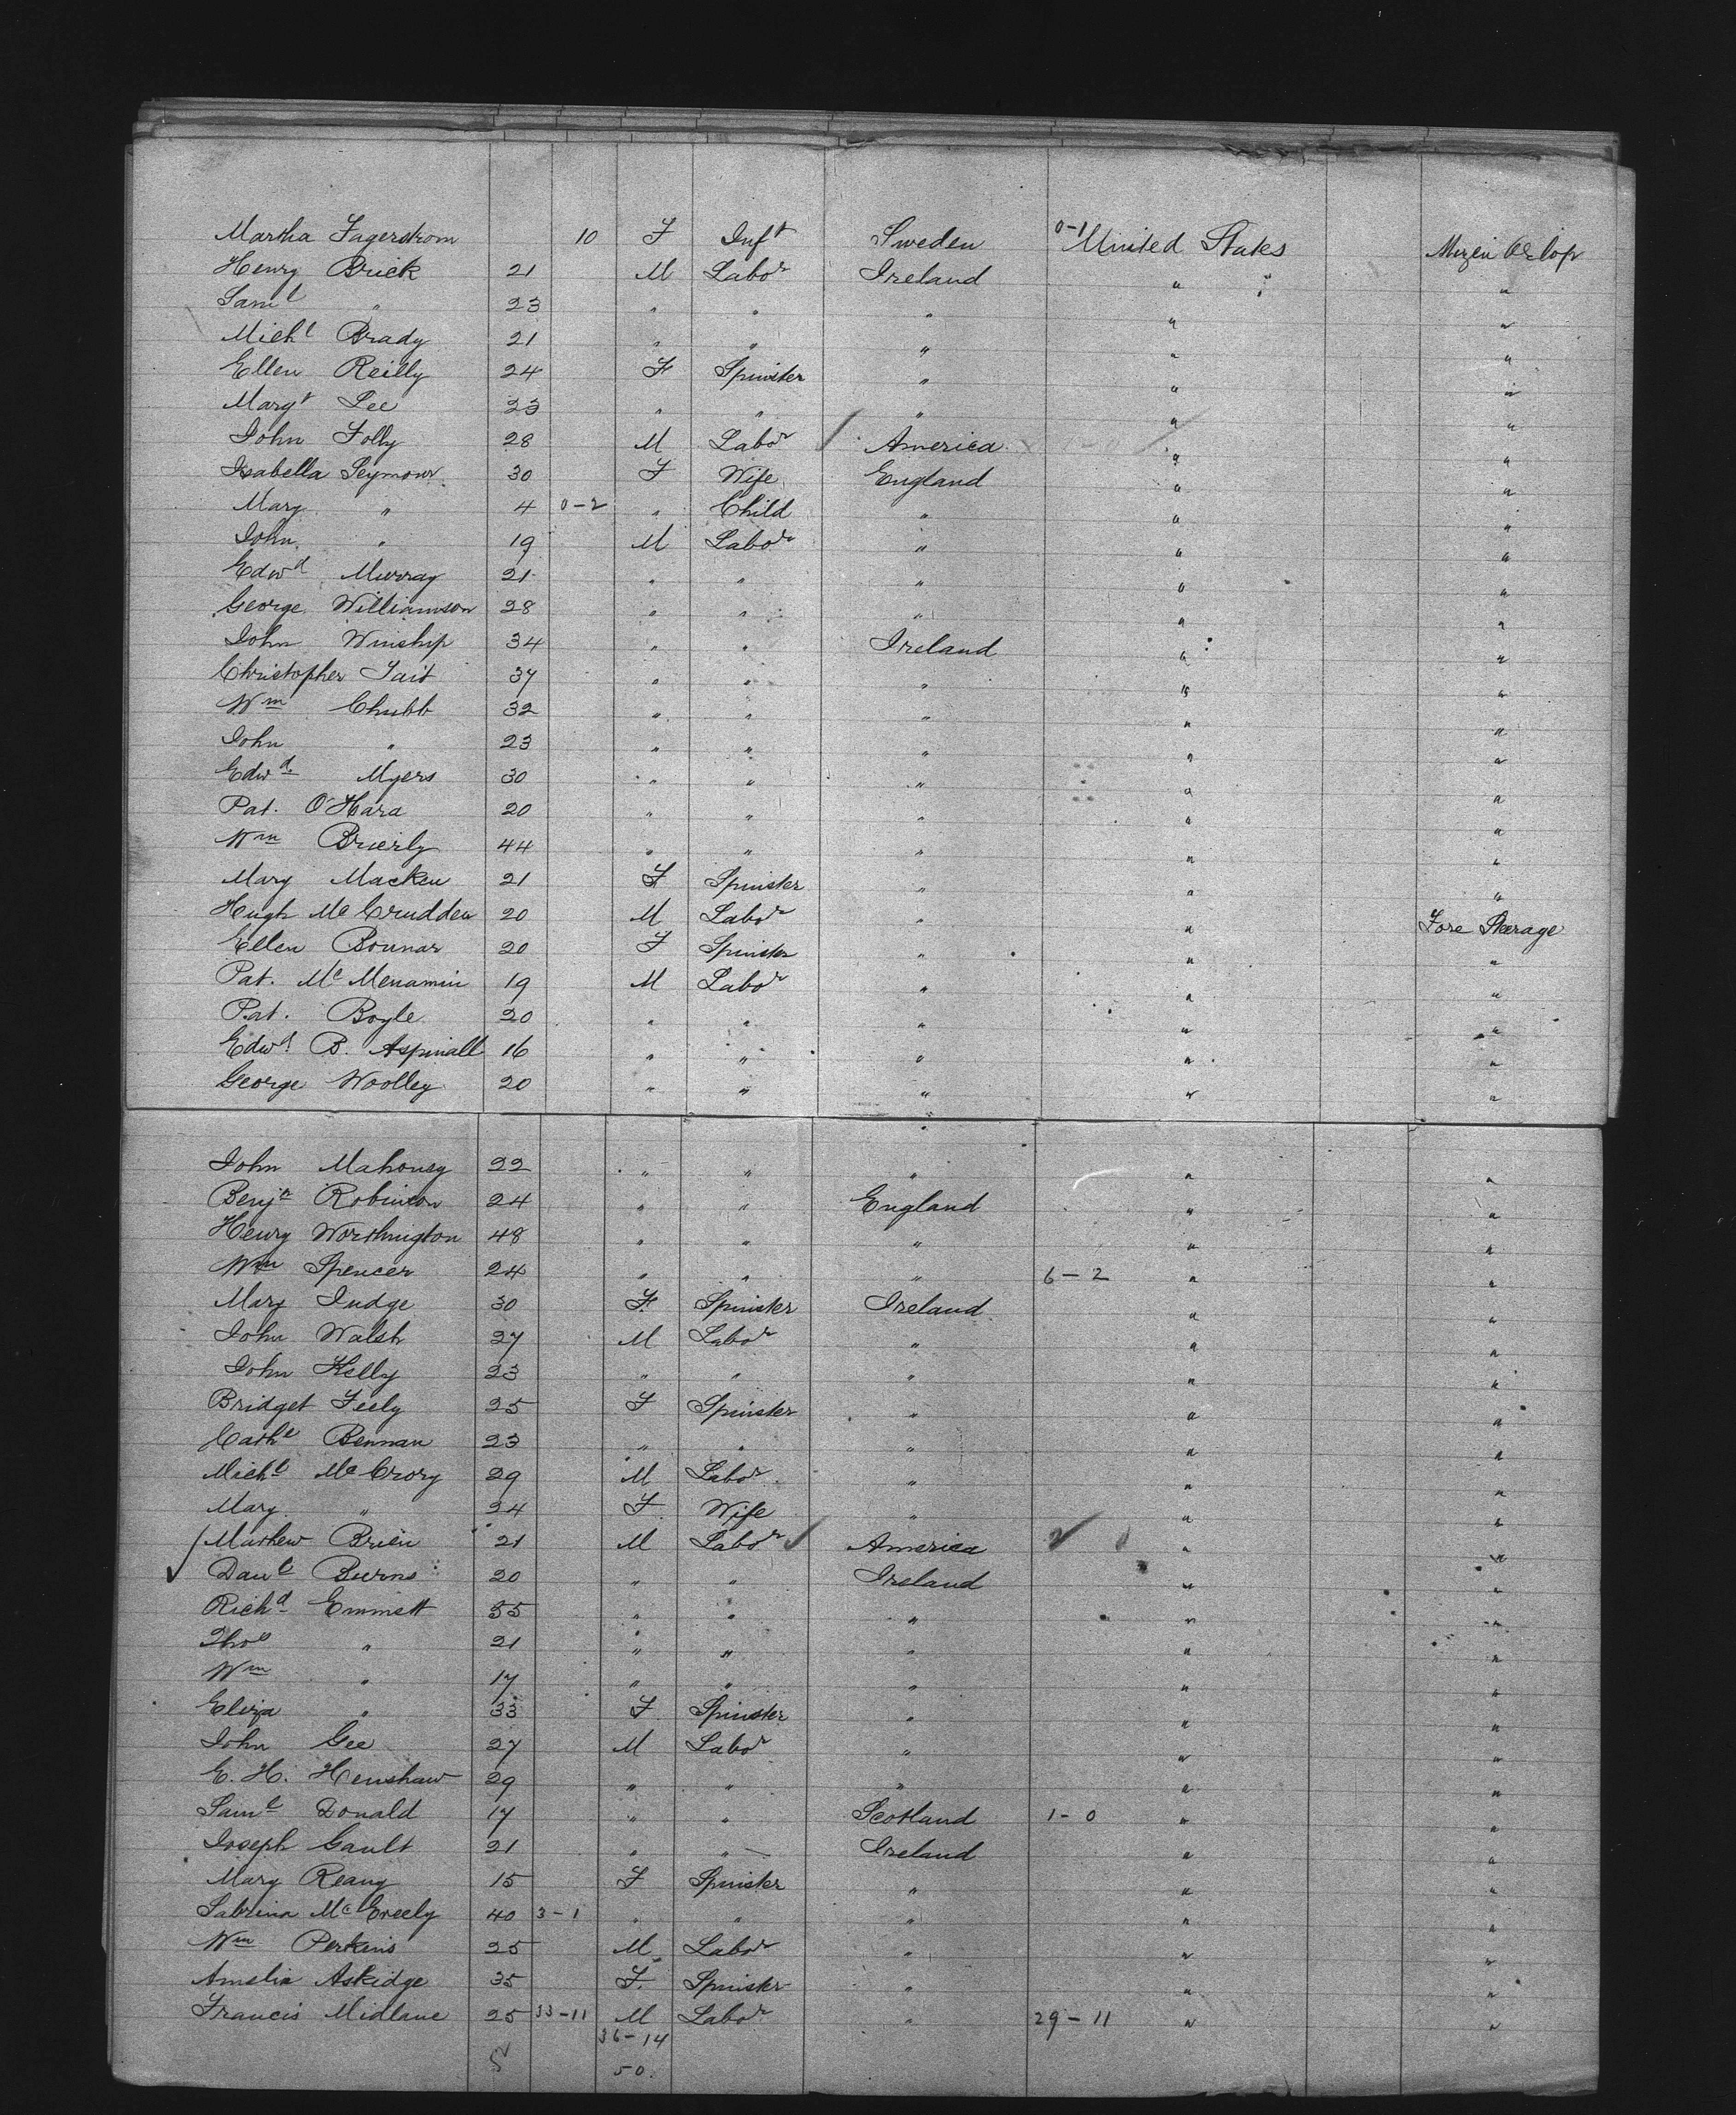 Martha Fagerstrom 10 F Inft Sweden 0-1 United States Mizen Orlop
Henry Brick 21 M Labor Ireland " "
Saml " 23 " " " " "
Michl Brady 21 " " " " "
Ellen Reilly 24 F Spinster " " "
Margt Lee 23 " " " " "
John Folly 28 M Labor America " "
Isabella Seymour 30 F Wife England " "
Mary " 4 0-2 " Child " " "
John " 19 M Labor " " "
Edwd Murray 21 " " " " "
George Williamson 28 " " " " "
John Winship 34 " " Ireland " "
Christopher Tait 37 " " " " "
Wm Chubb 32 " " " " "
John " 23 " " " " "
Edwd Myers 30 " " " " "
Pat. O'Hara 20 " " " " "
Wm Brierly 44 " " " " "
Mary Macken 21 F Spinster " " "
Hugh McCrudden 20 M Labor " " Fore Steerage
Ellen Bonnar 20 F Spinster " " "
Pat. McMenamin 19 M Labor " " "
Pat. Boyle 20 " " " " "
Edwd B. Aspinall 16 " " " " "
George Woolley 20 " " " " "
John Mahoney 22 " " " " "
Benjn Robinson 24 " " England " "
Henry Worthington 48 " " " " "
Wm Spencer 24 " " " 6-2 " "
Mary Judge 30 F Spinster Ireland " "
John Walsh 27 M Labor " " "
John Kelly 23 " " " " "
Bridget Feely 25 F Spinster " " "
Cathe Bennan 23 " " " " "
Michl McCrory 29 M Labor " " "
Mary " 24 F Wife " " "
Mathew Brien 21 M Labor America " "
Danl Burns 20 " " Ireland " "
Richd Emmett 35 " " " " "
Thos " 21 " " " " "
Wm " 17 " " " " "
Eliza " 33 F Spinster " " "
John Gee 27 M Labor " " "
E. H. Henshaw 29 " " " " "
Saml Donald 17 " " Scotland 1-0 " "
Joseph Gault 21 " " Ireland " "
Mary Reany 15 F Spinster " " "
Sabrina McGreely 40 3-1 " " " " "
Wm Perkins 25 M Labor " " "
Amelia Askidge 35 F. Spinster " " "
Francis Midlane 25 33-11 M Labor " 29-11 " "
36-14
50